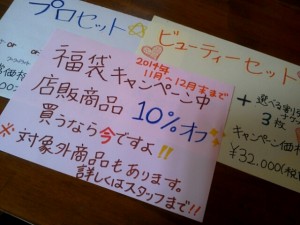 プロセット☆
ビューティーセット
2014年
11月〜12月末まで
福袋キャンペーン中
店販商品 10%オフ
買うなら今ですよ!!
※対象外商品もあります。
詳しくはスタッフまで!!
or
+
選べる
3枚
キャンペーン価格
¥32,000(税